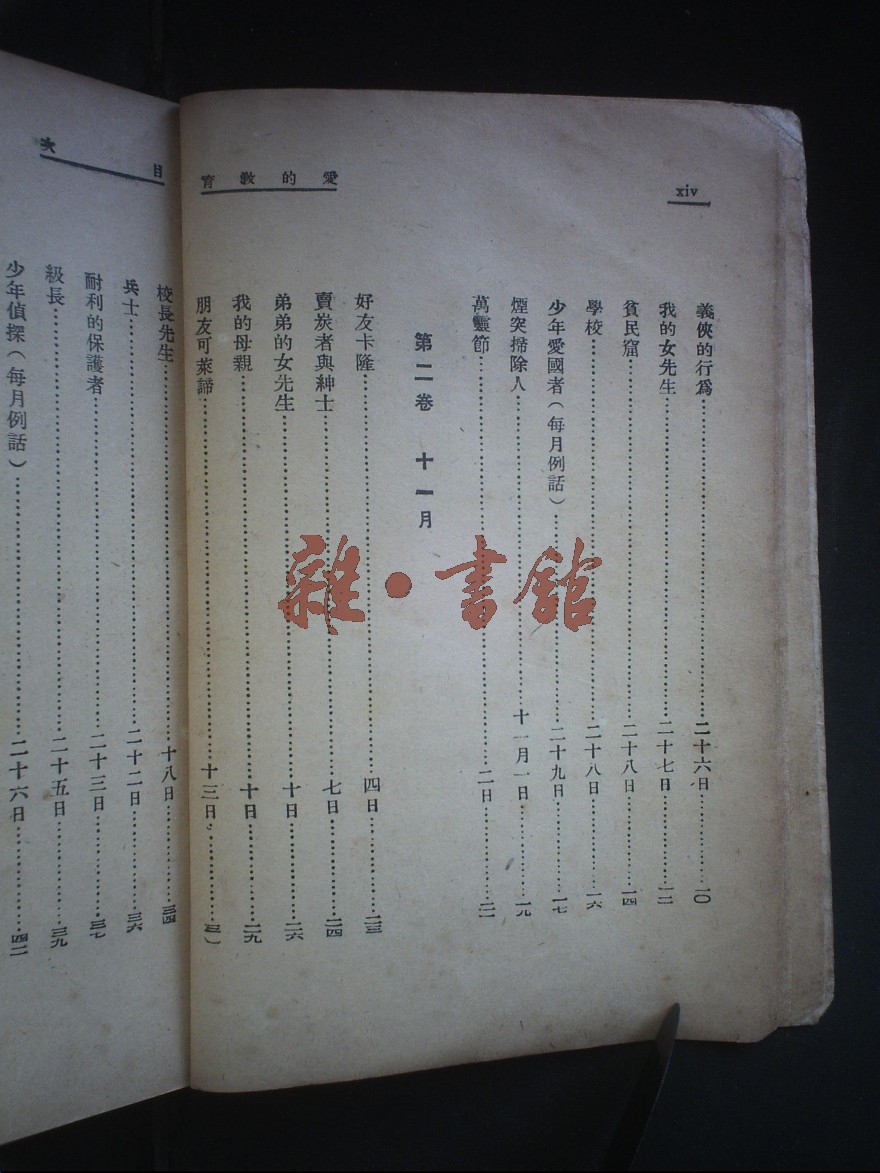 xiv
愛的教育
義俠的行爲……二十六日……一〇
我的女先生……二十七日……一二
貧民窟……二十八日……一四
學校……二十八日……一六
少年愛國者（每月例話）……二十九日……一七
煙突掃除人……十一月一日……一九
萬靈節……二日……二一
第二卷 十一月
好友卡隆……四日……二三
賣炭者與紳士……七日……二四
弟弟的女先生……十日……二六
我的母親……十日……二九
朋友可萊諦……十三日……三一
目次
校長先生……十八日……三四
兵士……二十二日……三六
耐利的保護者……二十三日……三七
級長……二十五日……三九
少年偵探（每月例話）……二十六日……四二
雜·書館